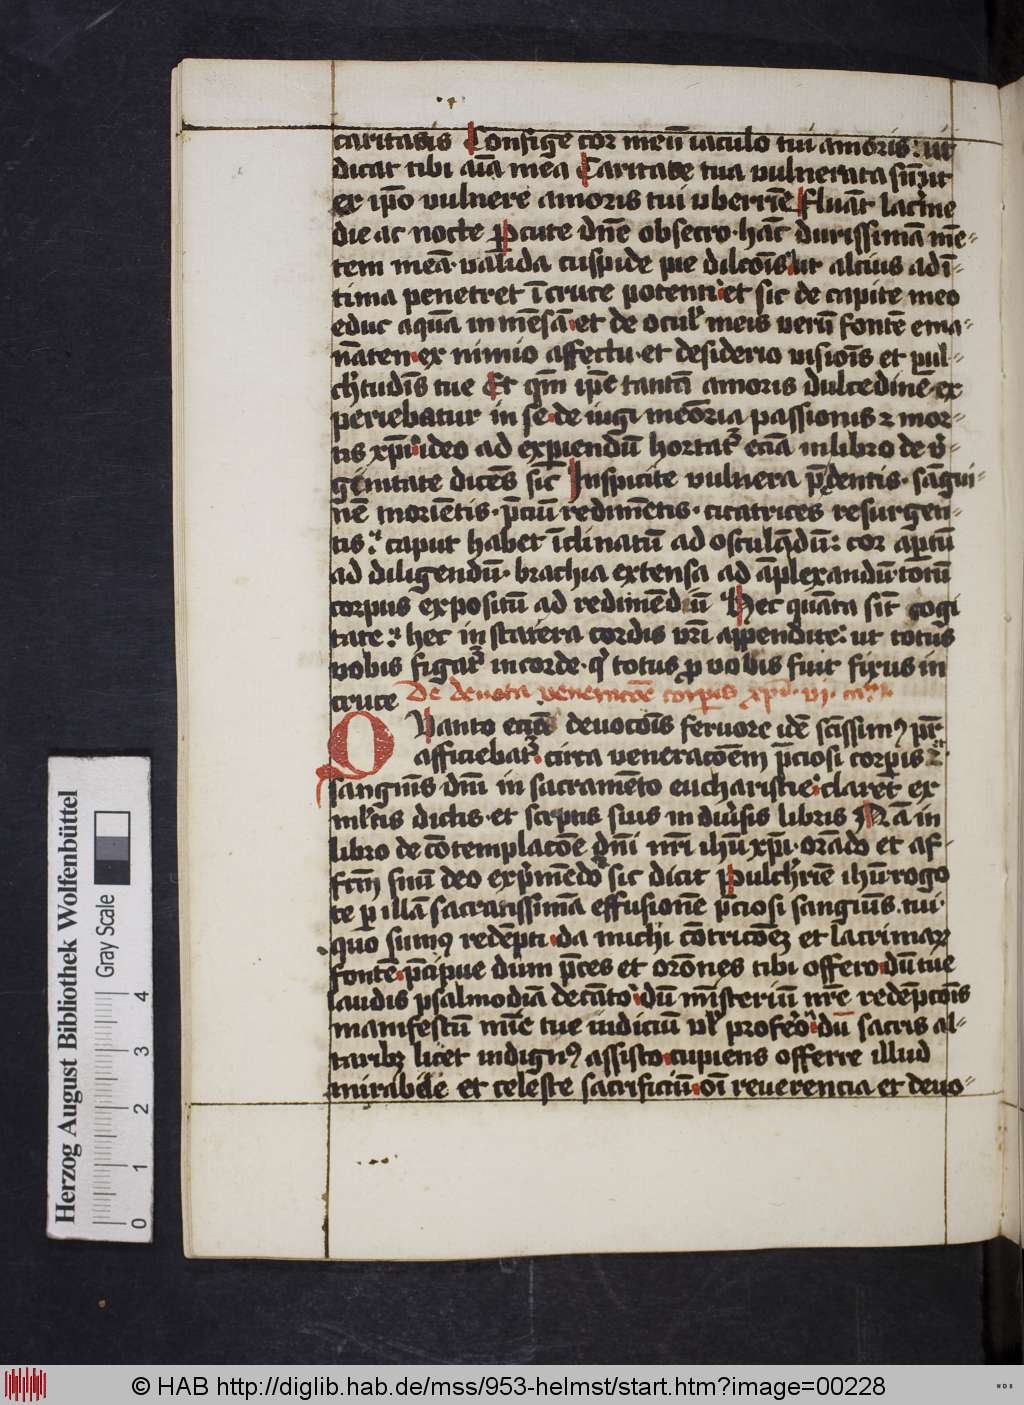 caritatis Confige cor meū iaculo tui amoris: ut
dicat tibi aīa mea Caritate tua vulnerata sū et
ex ip̄o vulnere amoris tui vberrīe fluāt lacrīe
die ac nocte Percute dn̄e obsecro hāc durissimā mē-
tem meā valida cuspide pie dilcōis ut alcius ad ī-
tima penetret ī cruce potenti et sic de capite meo
educ aquā in mēsā et de ocul' meis verū fontē ema-
nātem ex nimio affectu et desiderio visiōis et pul-
ch'tudīs tue Et qm̄ ip̄e tantā amoris dulcedinē ex
periebatur in se de iugi memōria passionis z mor-
tis xp̄i ideo ad expiendū hortat' eciā in libro de v'-
ginitate dicēs sic̄ Inspicite vulnera pēdentis sāgui-
nē moriētis p̄ciū redimētis cicatrices resurgen-
tis caput habet īclinatū ad osculādū: cor ap̄tū
ad diligendū brachia extensa ad āplexandū totū
corpus expositū ad redimēdū Hec quāta sīt cogi
tate: hec in statera cordis vr̄i appendite: ut totus
vobis figat' in corde q' totus p vobis fuit fixus in
cruce De deuota venerac̄oe corporis xp̄i vi ca
Quanto eciā deuoc̄ois feruore idē sc̄issim9 pr̄
afficiebat' circa venerac̄oem p̄ciosi corp̄is z
sanguīs dn̄i in sacramēto eucharistie claret ex
ml'tis dictis et sc'ptis suis in diu'sis libris Nā in
libro de cōtemplac̄oe dn̄i nr̄i ihū xp̄i orādo et af-
fc̄m suū deo exp'mēdo sic dicit Pulch'rīe ihū rogo
te p illā sacratissimā effusionē p̄ciosi sanguīs tui
quo sum9 redēpti da michi cōtric̄oem et lacrimarꝝ
fontē p̄cipue dum p̄ces et orōnes tibi offero dū tue
laudis psalmodiā decāto dū mīsteriū nr̄e redēpc̄ois
manifestū mīe tue iudiciū vl' profero dū sacris al-
taribꝫ licet indign9 assisto cupiens offerre illud
mirabile et celeste sacrificiū oī reuerencia et deuo-
Herzog August Bibliothek Wolfenbüttel
Gray Scale
0 1 2 3 4
© HAB http://diglib.hab.de/mss/953-helmst/start.htm?image=00228